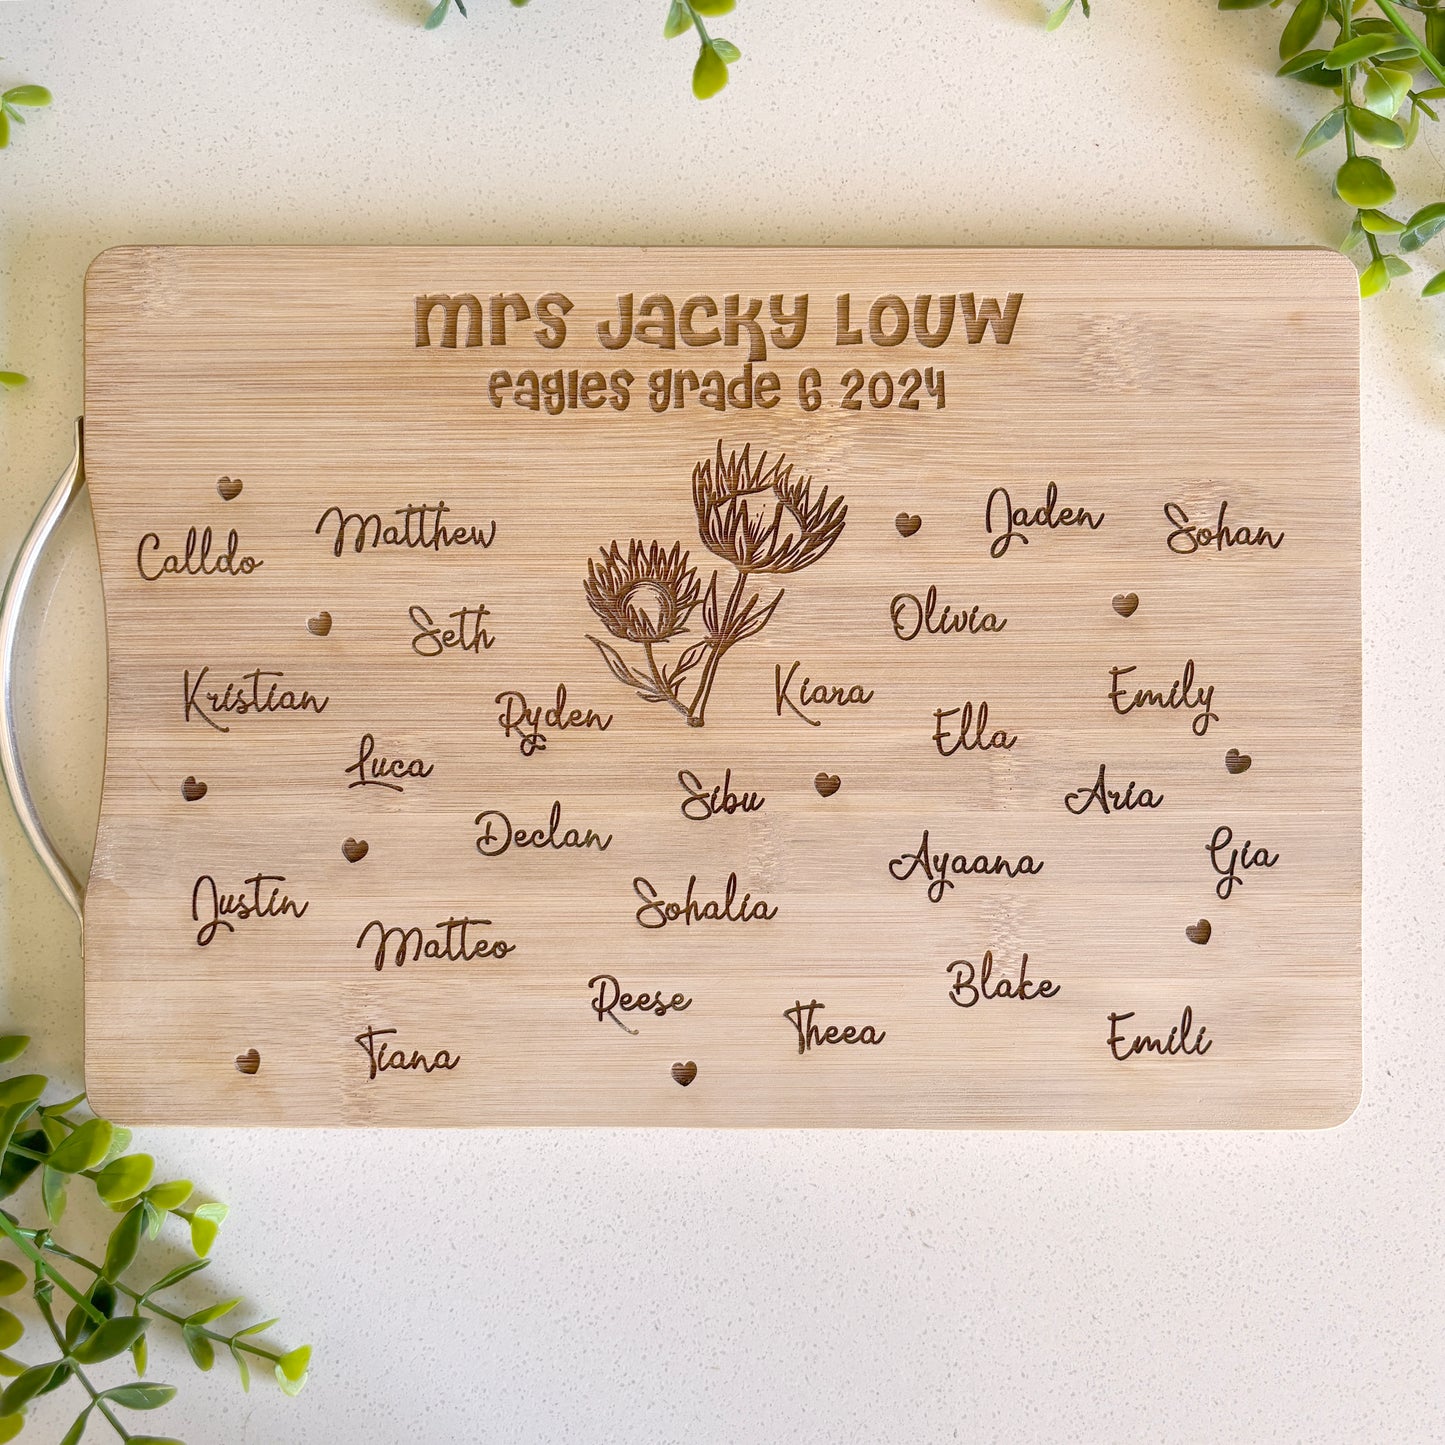 mrs Jacky Louw
eagles grade 6 2024
Calldo
Matthew
Jaden
Sohan
Seth
Olivia
Kristian
Ryden
Kiara
Emily
Luca
Ella
Sibu
Aria
Declan
Ayaana
Gia
Justin
Sohalia
Matteo
Reese
Blake
Theea
Emili
Tiana